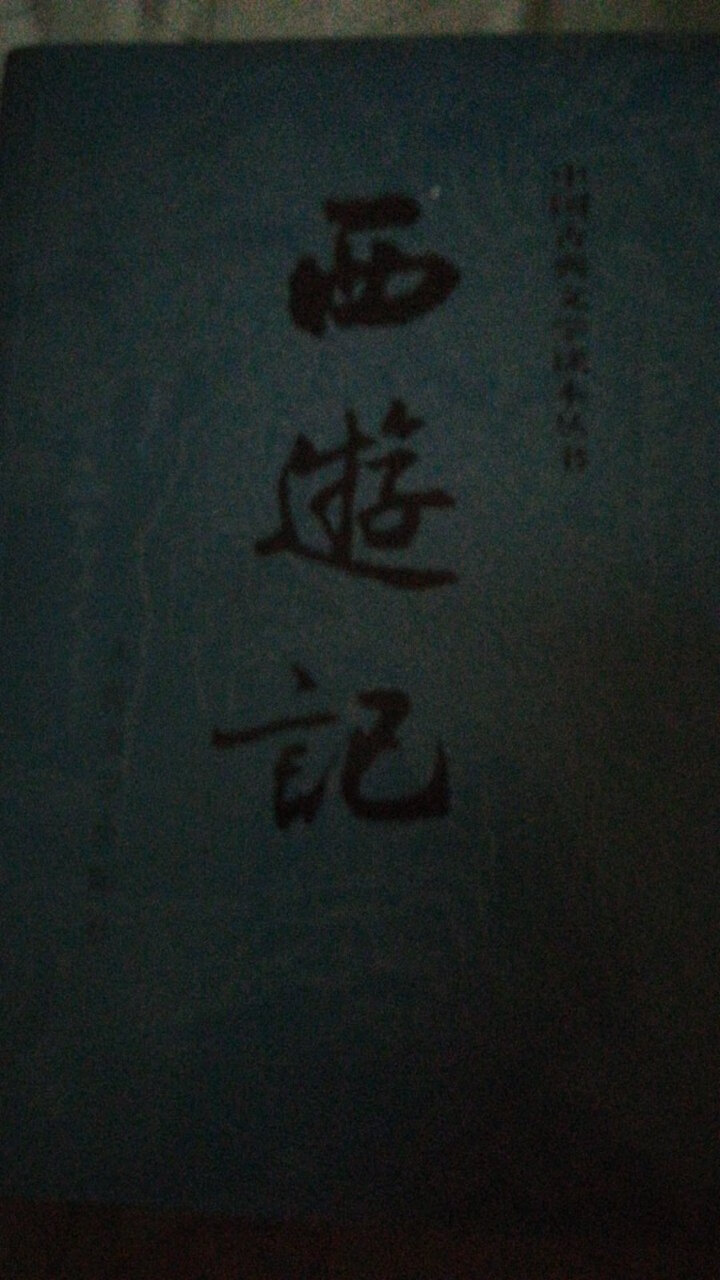 中国古典文学读本丛书
西遊記